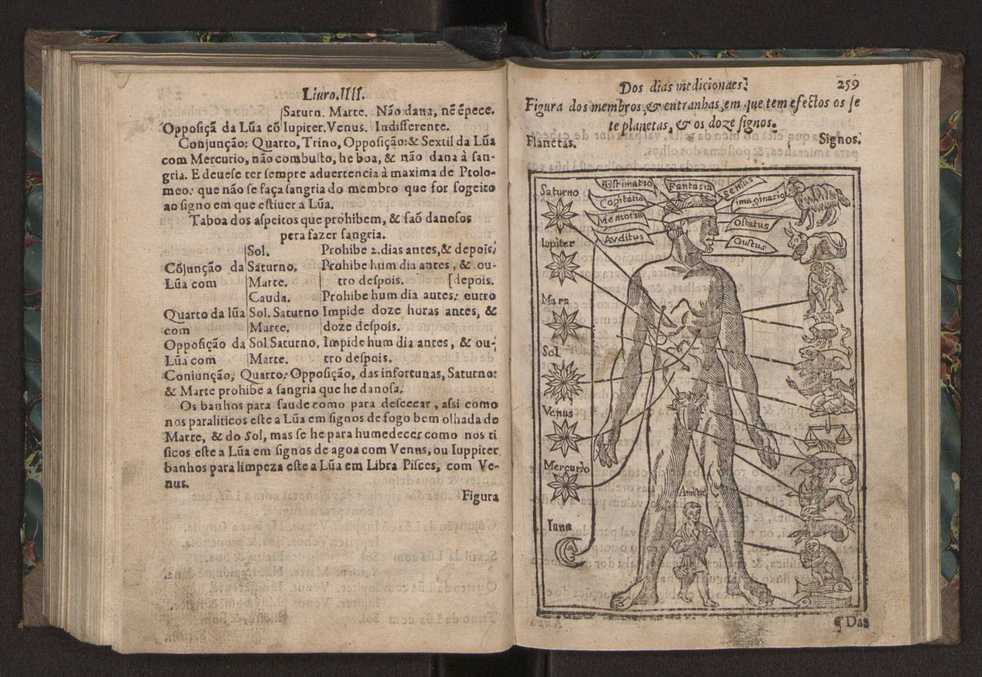 Liuro.IIII.
Saturn. Marte. Não dana, nẽ ẽpece.
Opposiçã da Lũa cõ Iupiter. Venus. Indifferente.
Conjunção: Quarto, Trino, Opposição: & Sextil da Lũa
com Mercurio, não combusto, he boa, & não dana à san-
gria. E deuese ter sempre aduertencia à maxima de Ptolo-
meo: que não se faça sangria do membro que for sogeito
ao signo em que estiuer a Lũa.
Taboa dos aspeitos que prohibem, & saõ danosos
pera fazer sangria.
Sol. Prohibe 2. dias antes, & depois.
Cõjunção da Saturno, Prohibe hum dia antes, & ou-
Lũa com Marte. tro despois. [depois.
Cauda. Prohibe hum dia antes: outro
Quarto da lũa Sol. Saturno Impide doze horas antes, &
com Marte. doze despois.
Opposição da Sol Saturno. Impide hum dia antes, & ou-
Lũa com Marte. tro despois.
Coniunção, Quarto: Opposição, das infortunas, Saturno:
& Marte prohibe a sangria que he danosa.
Os banhos para saude como para dessecar, assi como
nos paraliticos este a Lũa em signos de fogo bem olhada do
Marte, & do Sol, mas se he para humedecer como nos ti
sicos este a Lũa em signos de agoa com Venns, ou Iuppiter
banhos para limpeza este a Lũa em Libra Pisces, com Ve-
nus.
Figura
Dos dias medicionaes: 259
Figura dos membros, & entranhas, em que tem efectos os se
te planetas, & os doze signos.
Planetas. Signos.
Saturno
Iupiter
Mars
Sol
Venus
Mercurio
luna
Fantasia
imaginario
Memoria
Auditus
Gustus
¶ Das